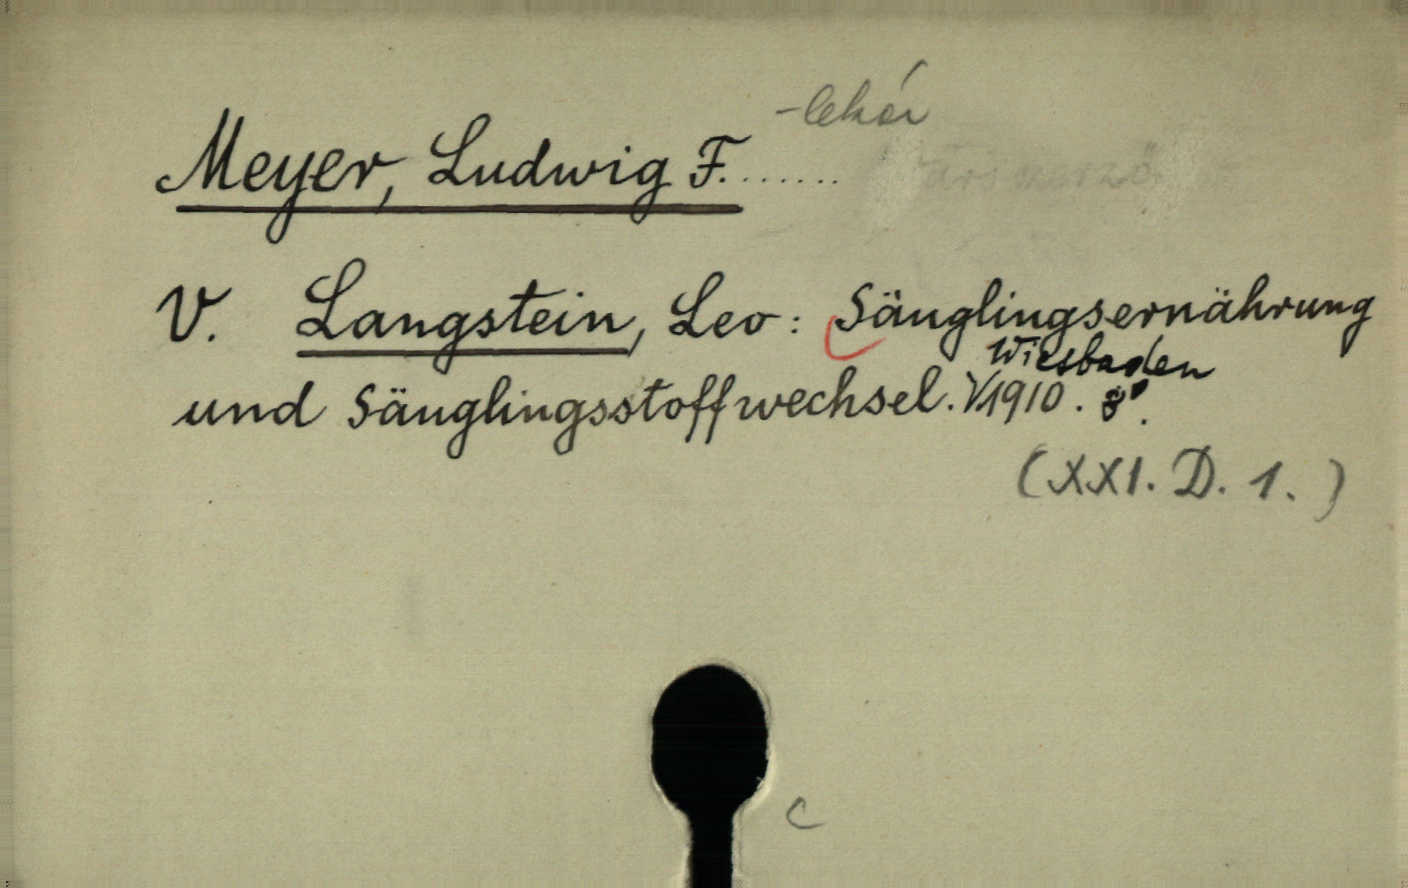 -lekár
Meyer, Ludwig F.......
V. Langstein, Leo: Säuglingsernährung
Wiesbaden
und Säuglingsstoffwechsel. 1910. 8°.
(XXI. D. 1.)
c